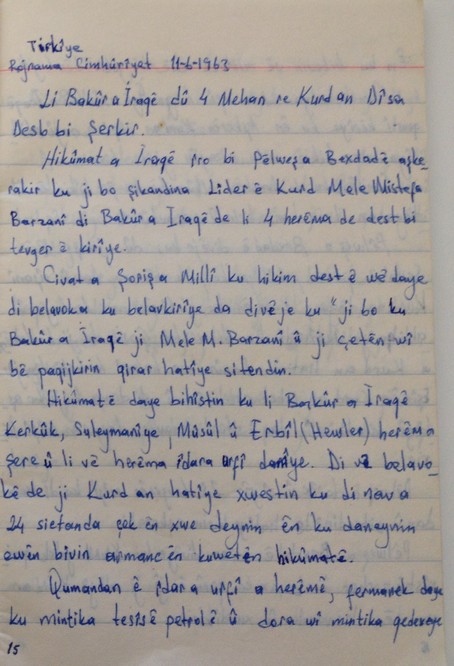 Türkîye
Rojnama Cimhûrîyet 11-6-1963
Li Bakûr a Îraqê dû 4 Mehan re Kurdan Dîsa
Dest bi Şerkir.
Hikûmat a Iraqê îro bi Pêlweşa Bexdadê aşke
rakir ku ji bo şikandina Lider ê Kurd Mele Mistefa
Barzanî di Bakûr a Iraqê de li 4 herêma de dest bi
tevger ê kirîye.
Civat a Şorişa Millî ku hikim dest ê wê daye
di belavoka ku belavkirîye da divêje ku "ji bo ku
Bakûr a Îraqê ji Mele M. Barzanî û ji çetên wî
bê paqijkirin qirar hatîye sitendin.
Hikûmatê daye bihîstin ku li Bakûr a Îraqê
Kerkûk, Suleymanîye, Mûsûl û Erbîl (Hewler) herêma
şere û li vê herêma îdara urfî danîye. Di vê belavo_
kê de ji Kurdan hatîye xwestin ku di nava
24 sietanda çek ên xwe deynin ên ku daneynin
ewên bivin armanc ên kuwetên hikûmatê.
Qumandan ê îdara urfî a herêmê, fermanek daye
ku mintika tesîsê petrolê û dora wî mintika qedexeye
15